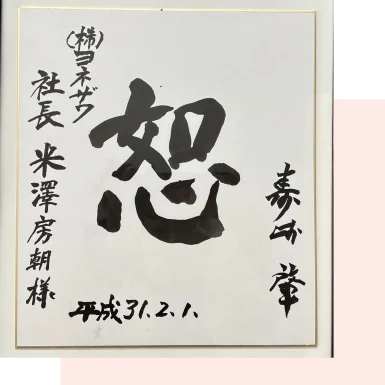 恕
㈱ヨネザワ
社長 米澤房朝様
平成31.2.1.
肇